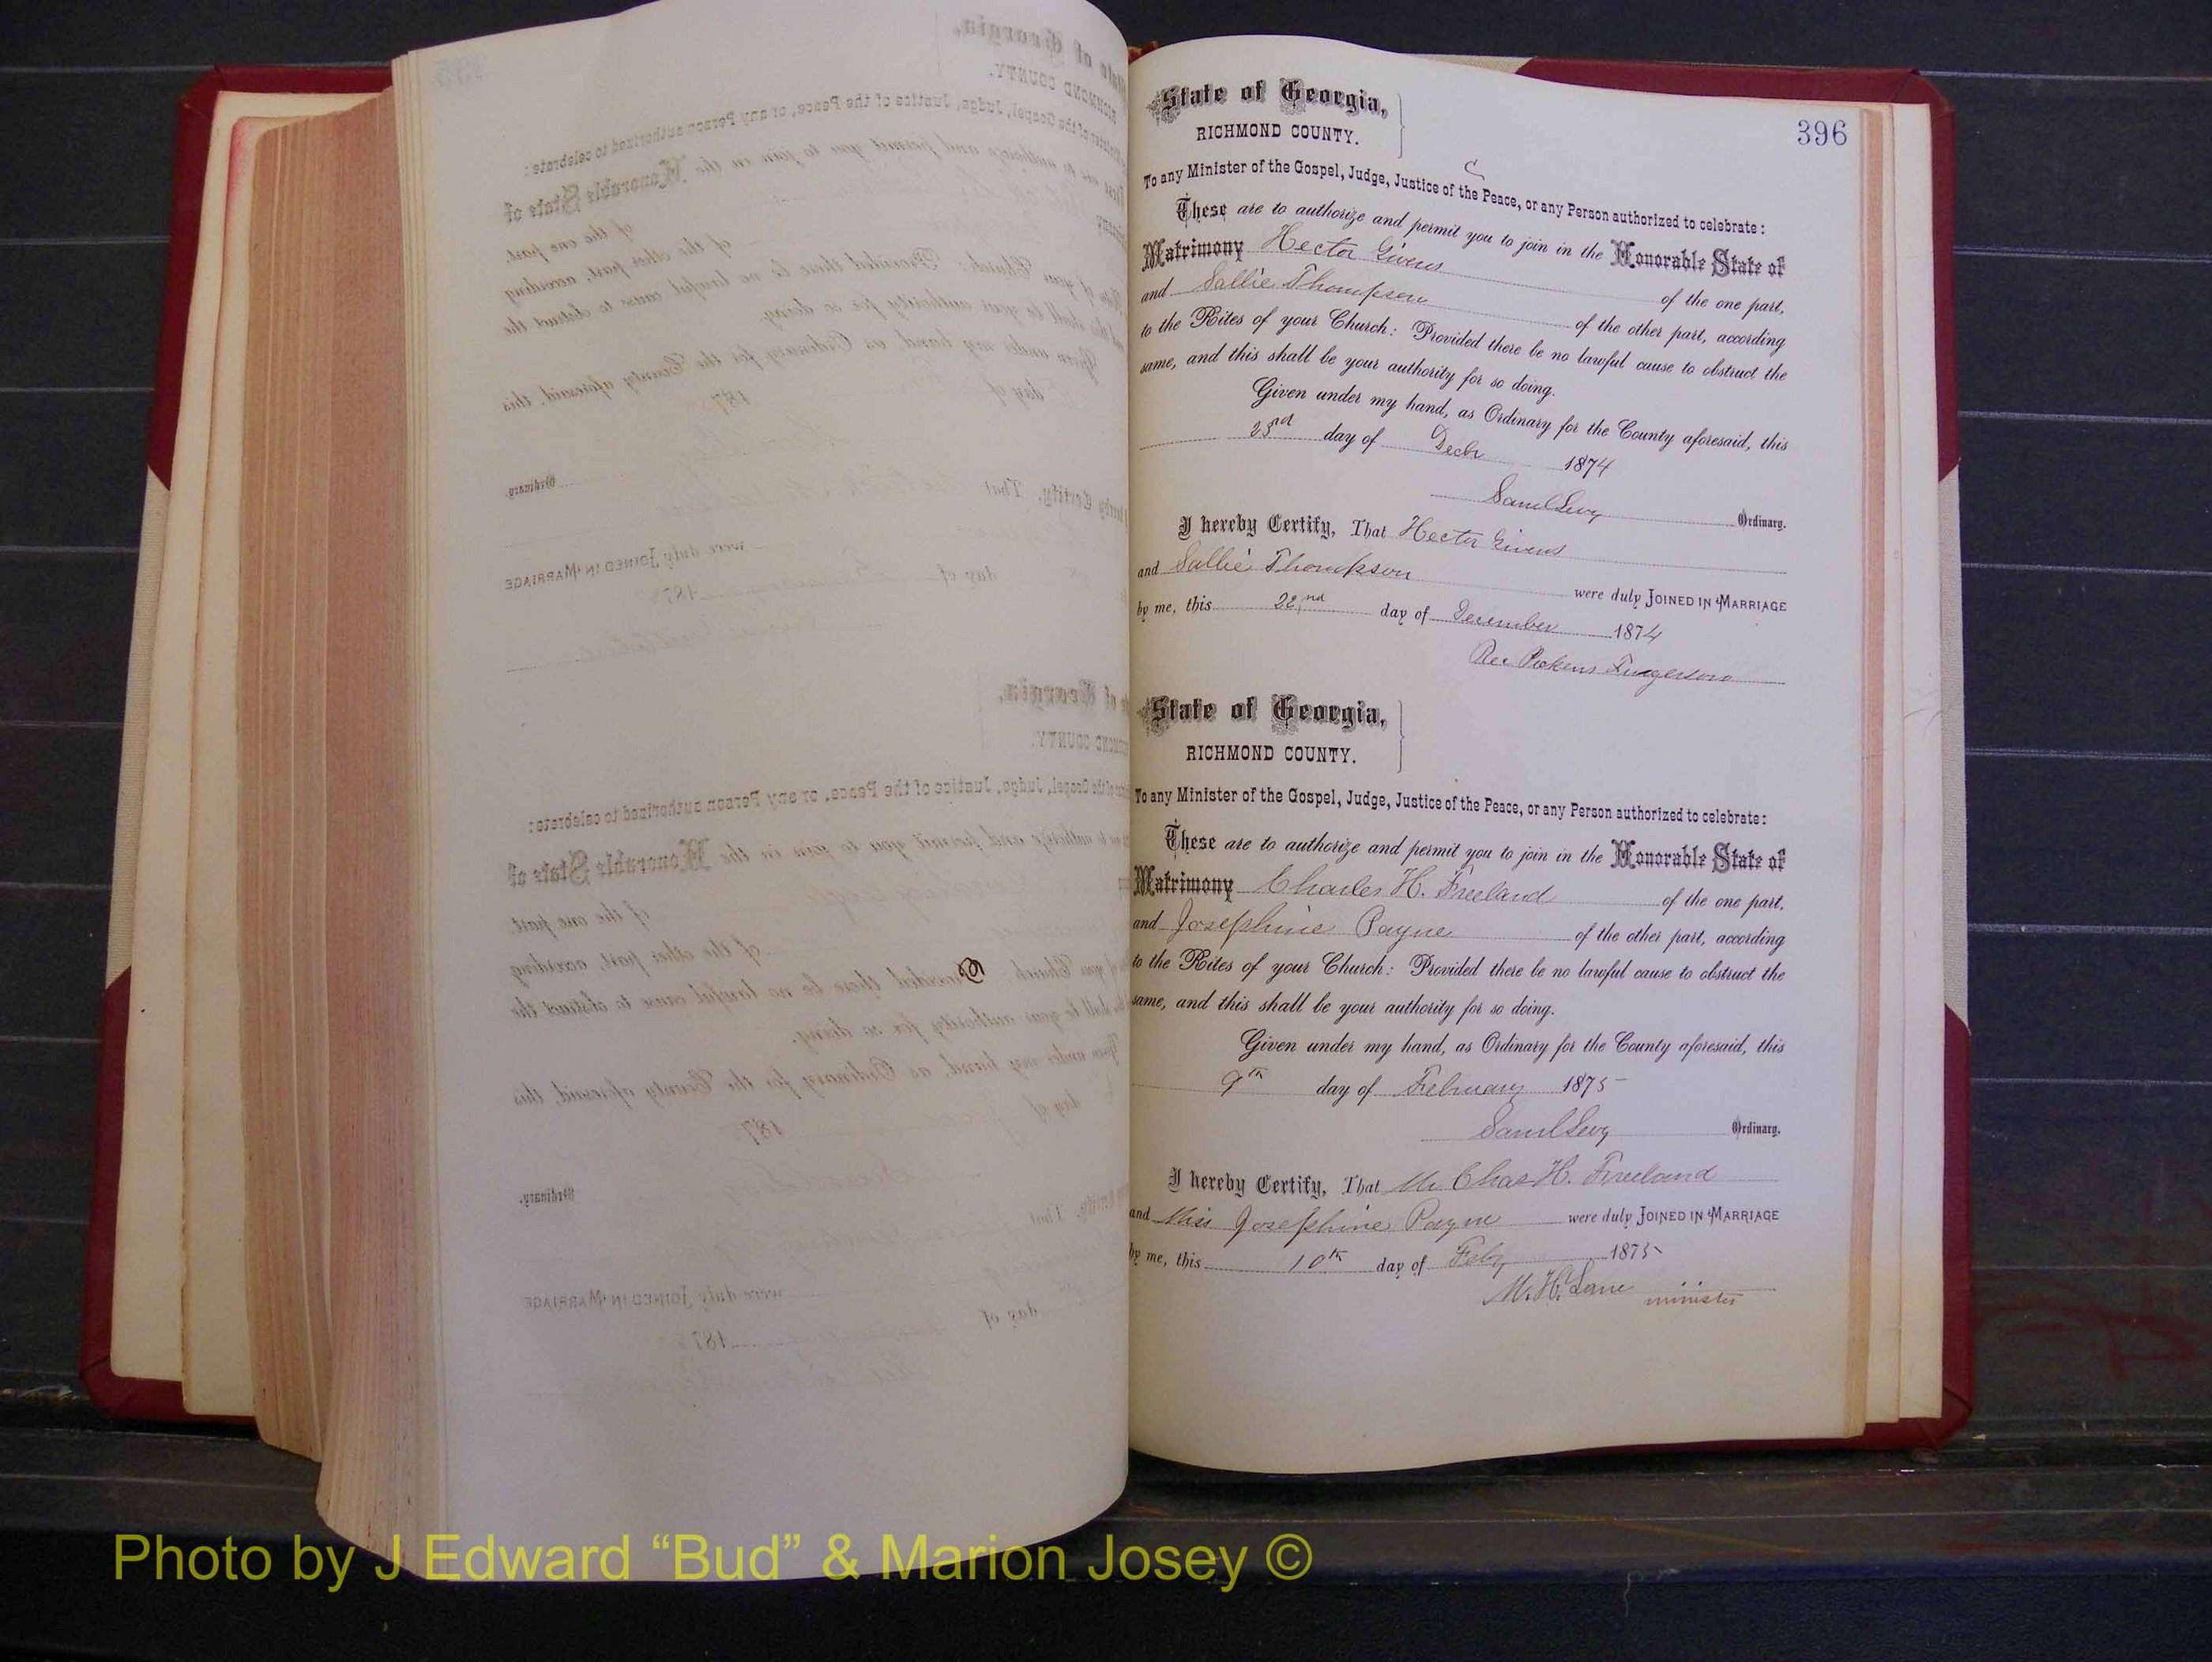 396
State of Georgia,
RICHMOND COUNTY.
C
To any Minister of the Gospel, Judge, Justice of the Peace, or any Person authorized to celebrate:
These are to authorize and permit you to join in the Honorable State of
Matrimony Hector Givens of the one part,
and Sallie Thompson of the other part, according
to the Rites of your Church: Provided there be no lawful cause to obstruct the
same, and this shall be your authority for so doing.
Given under my hand, as Ordinary for the County aforesaid, this
23rd day of Decbr 1874
Saml Levy Ordinary.
I hereby Certify, That Hector Givens
and Sallie Thompson were duly JOINED IN MARRIAGE
by me, this day of December 1874
Rev Pickens
State of Georgia,
RICHMOND COUNTY.
To any Minister of the Gospel, Judge, Justice of the Peace, or any Person authorized to celebrate:
These are to authorize and permit you to join in the Honorable State of
Matrimony Charles H. Freeland of the one part,
and Josephine Payne of the other part, according
to the Rites of your Church: Provided there be no lawful cause to obstruct the
same, and this shall be your authority for so doing.
Given under my hand, as Ordinary for the County aforesaid, this
9th day of February 1875
Saml Levy Ordinary.
I hereby Certify, That Mr Chas H. Freeland
and Miss Josephine Payne were duly JOINED IN MARRIAGE
by me, this 10th day of Feby 1875
M. H. Lane minister
Photo by J Edward “Bud” & Marion Josey ©